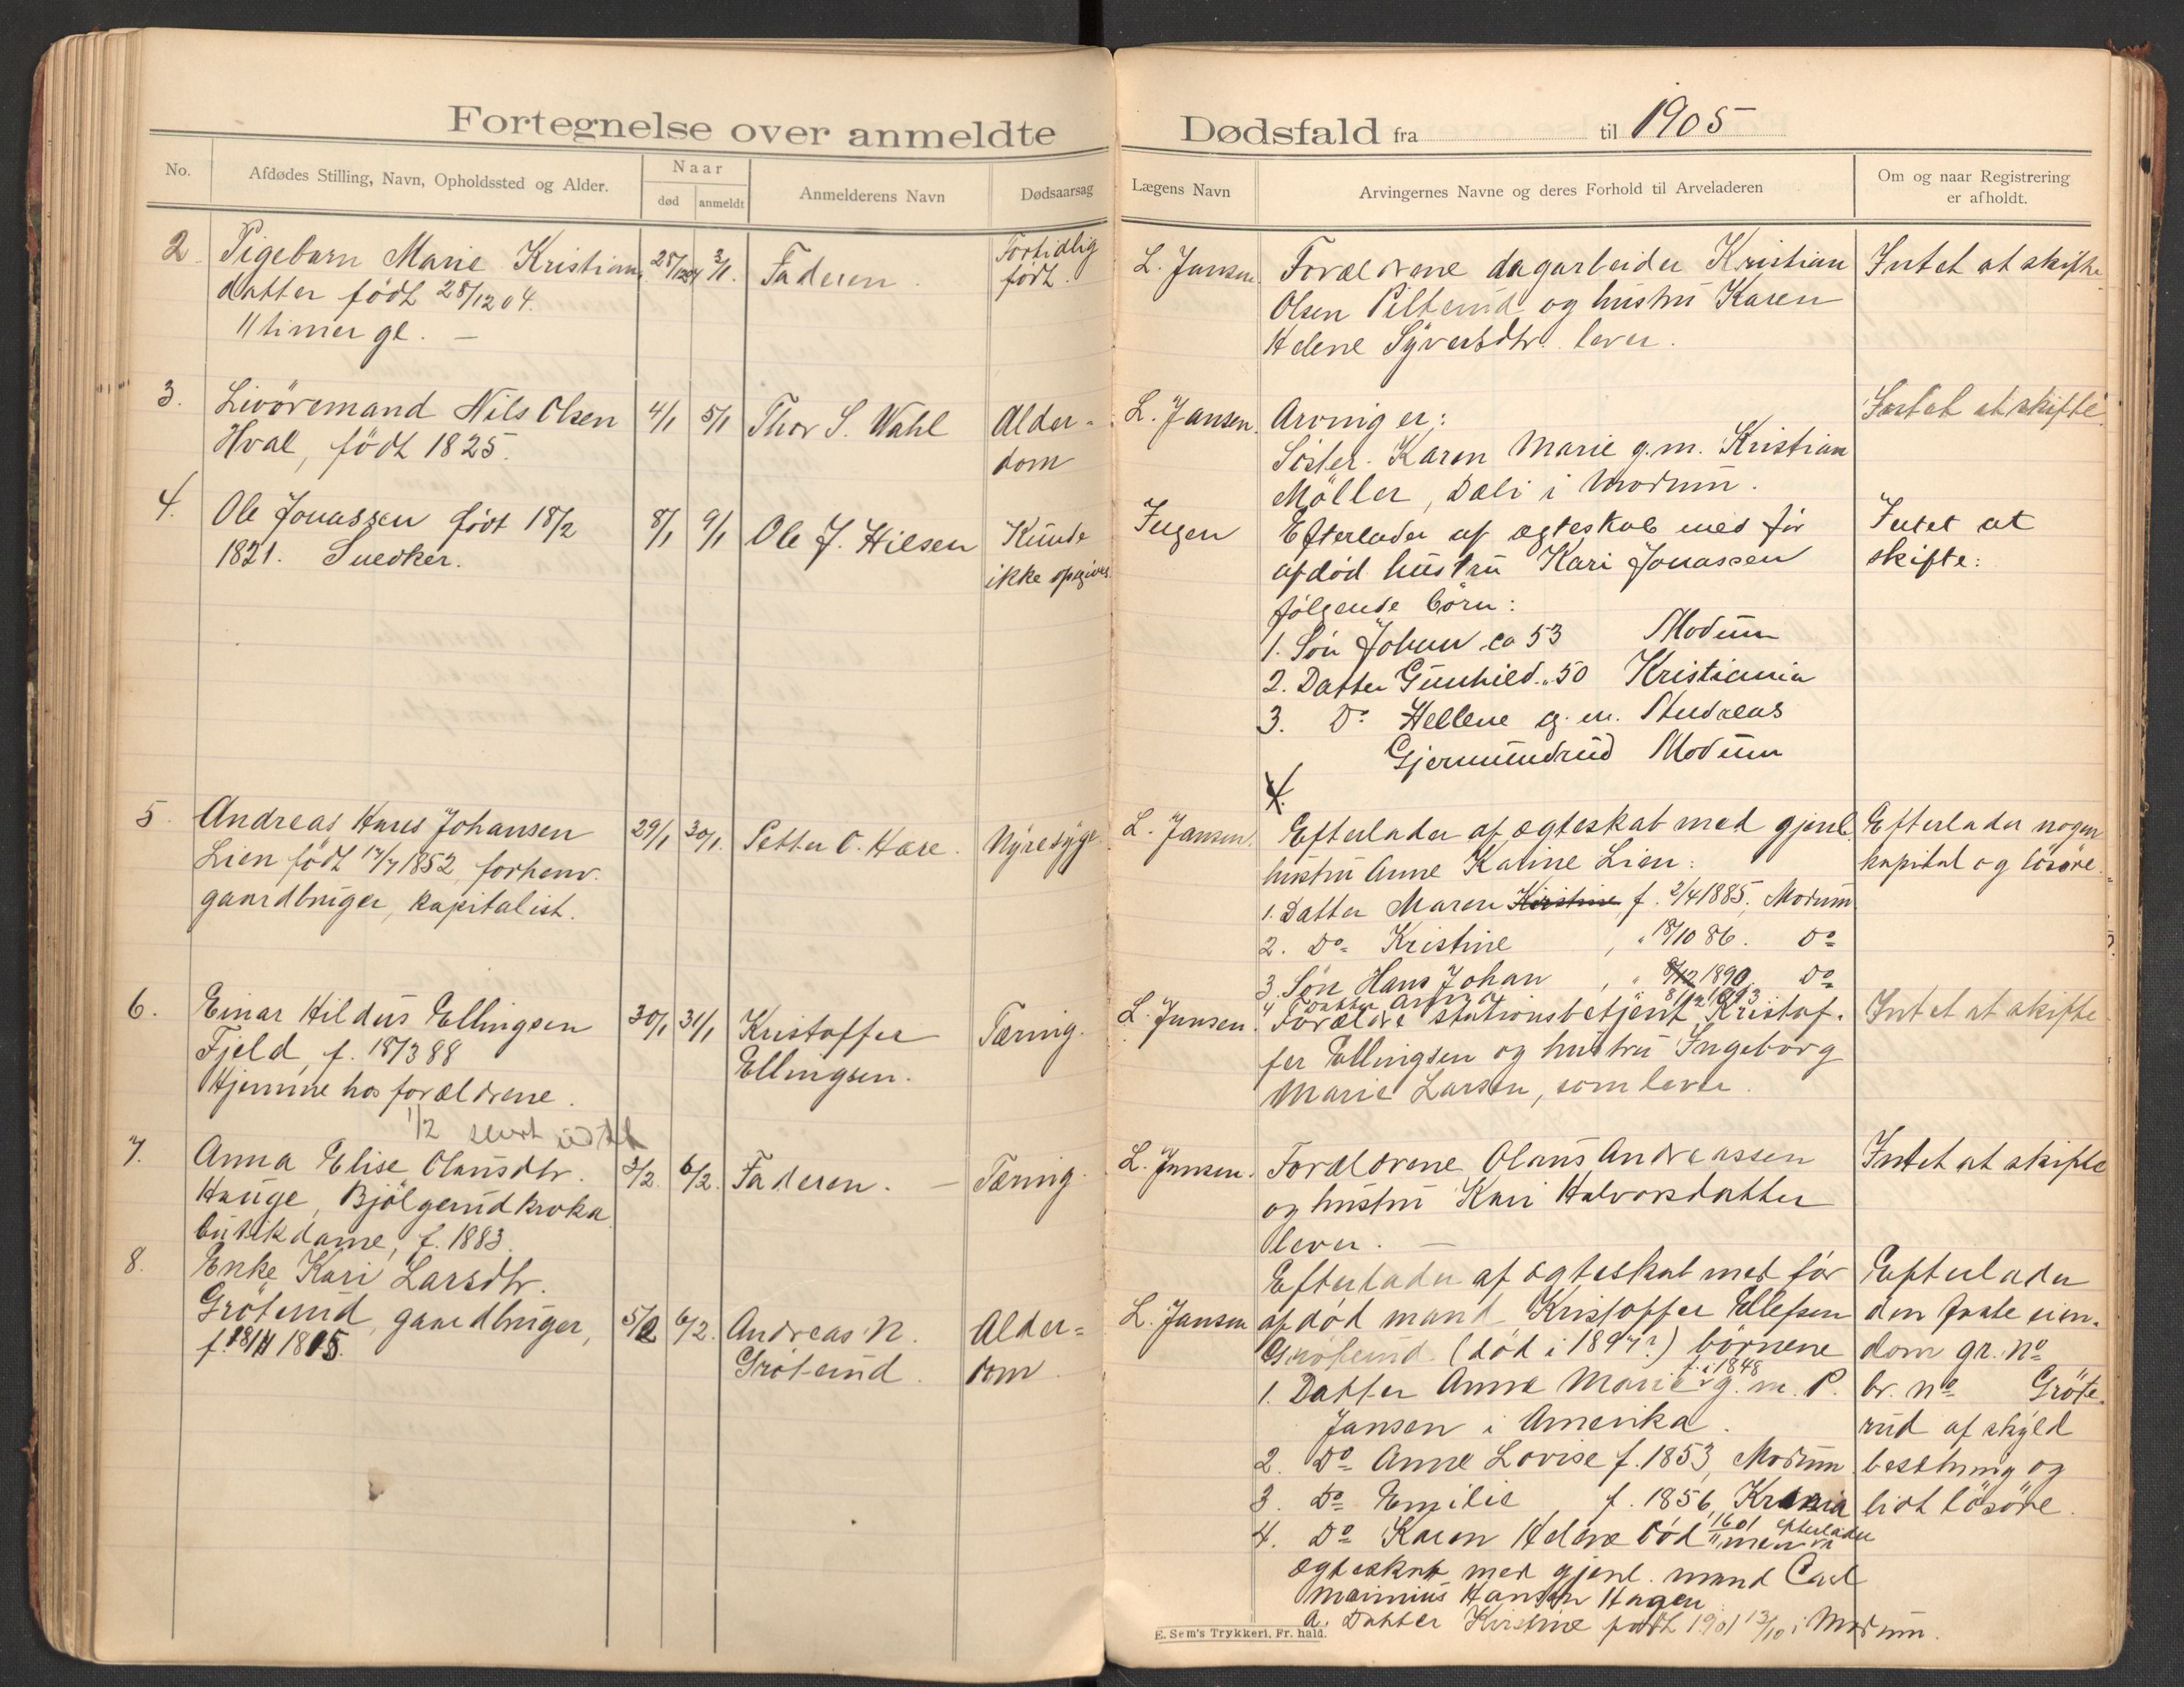 Fortegnelse over anmeldte
No.
Afdødes Stilling, Navn, Opholdssted og Alder.
Naar
død
anmeldt
Anmelderens Navn
Dødsaarsag
2. Pigebarn Marie Kristians
datter födt 28/12 04.
11 timer gl. —
28/12 04
3/1.
Faderen.
Fortidlig
födt.
3. Livöremand Nils Olsen
Hval, födt 1825.
4/1
5/1
Thor S. Wahl
Alder-
dom
4. Ole Jonassen født 18/2
1821. Snedker.
8/1
9/1
Ole J. Hilsen
Kunde
ikke opgives.
5. Andreas Hans Johansen
Lien födt 17/7 1852, forhenv.
gaardbruger, kapitalist.
29/1
30/1.
Petter O. Hære.
Nyresyge.
6. Einar Hildus Ellingsen
Fjeld, f. 18/3 88
Hjemme hos forældrene.
30/1
31/1
Kristoffer
Ellingsen.
Tæring.
1/2
7. Anna Elise Olausdtr.
Hauge, Bjölgerud kroka
butikdame, f. 1883.
3/2.
6/2.
Faderen. —
Tæring.
8. Enke Kari Larsdtr.
Gröterud, gaardbruger,
f. 1815.
5/2
6/2.
Andreas N.
Gröterud.
Alder=
dom.
Dødsfald fra til 1905
Lægens Navn
Arvingernes Navne og deres Forhold til Arveladeren
Om og naar Registrering
er afholdt.
L. Jansen.
Forældrene dagarbeider Kristian
Olsen Pilterud og hustru Karen
Helene Syversdtr. lever.
Intet at skifte.
L. Jansen.
Arvinger:
Söster Karen Marie g.m. Kristian
Möller, Dali i Modum.
Intet at skifte.
Ingen
Efterlader af ægteskab med før
afdød hustru Kari Jonassen
følgende börn:
1. Sön Johan ca 53 Modum
2. Datter Gunhild " 50 Kristiania
3. Do Hellene g. m. Andreas
Gjermundrud Modum
Intet at
skifte:
4.
L. Jansen.
Efterlader af ægteskab med gjenl.
hustru Anne Karine Lien:
1. Datter Maren Kirstine, f. 2/4 1885, Modum
2. Do Kristine, " 18/10 86. Do
3. Søn Hans Johan, " 8/12 1890, Do
4 Datter Anna 8/12 1893
Efterlader nogen
kapital og lösöre.
L. Jansen.
Forældre stationsbetjent Kristof-
fer Ellingsen og hustru Ingeborg
Marie Larsen, som lever.
Intet at skifte.
L. Jansen.
Forældrene Olaus Andreassen
og hustru Kari Halvorsdatter
lever. —
Intet at skifte
L. Jansen
Efterlader af ægteskab med før
afdød mand Kristoffer Ellefsen
Gröterud (død i 1897?) börnene
1. Datter Anne Marie f. i 1848 g. m. P.
Jansen i Amerika.
2. Do Anne Lovise f. 1853, Modum
3. Do Emilie, f. 1856, Krania
4. Do Karen Helene død efterlader
ægteskab med gjenl. mand Carl
Hansen Hagen
a. Datter Kristine født 1901 13/10 i Modum.
Efterlader
den faste eien-
dom gr. No
br. No Gröte-
rud af skyld
besætning og
lidt lösöre.
E. Sem's Trykkeri, Fr. hald.